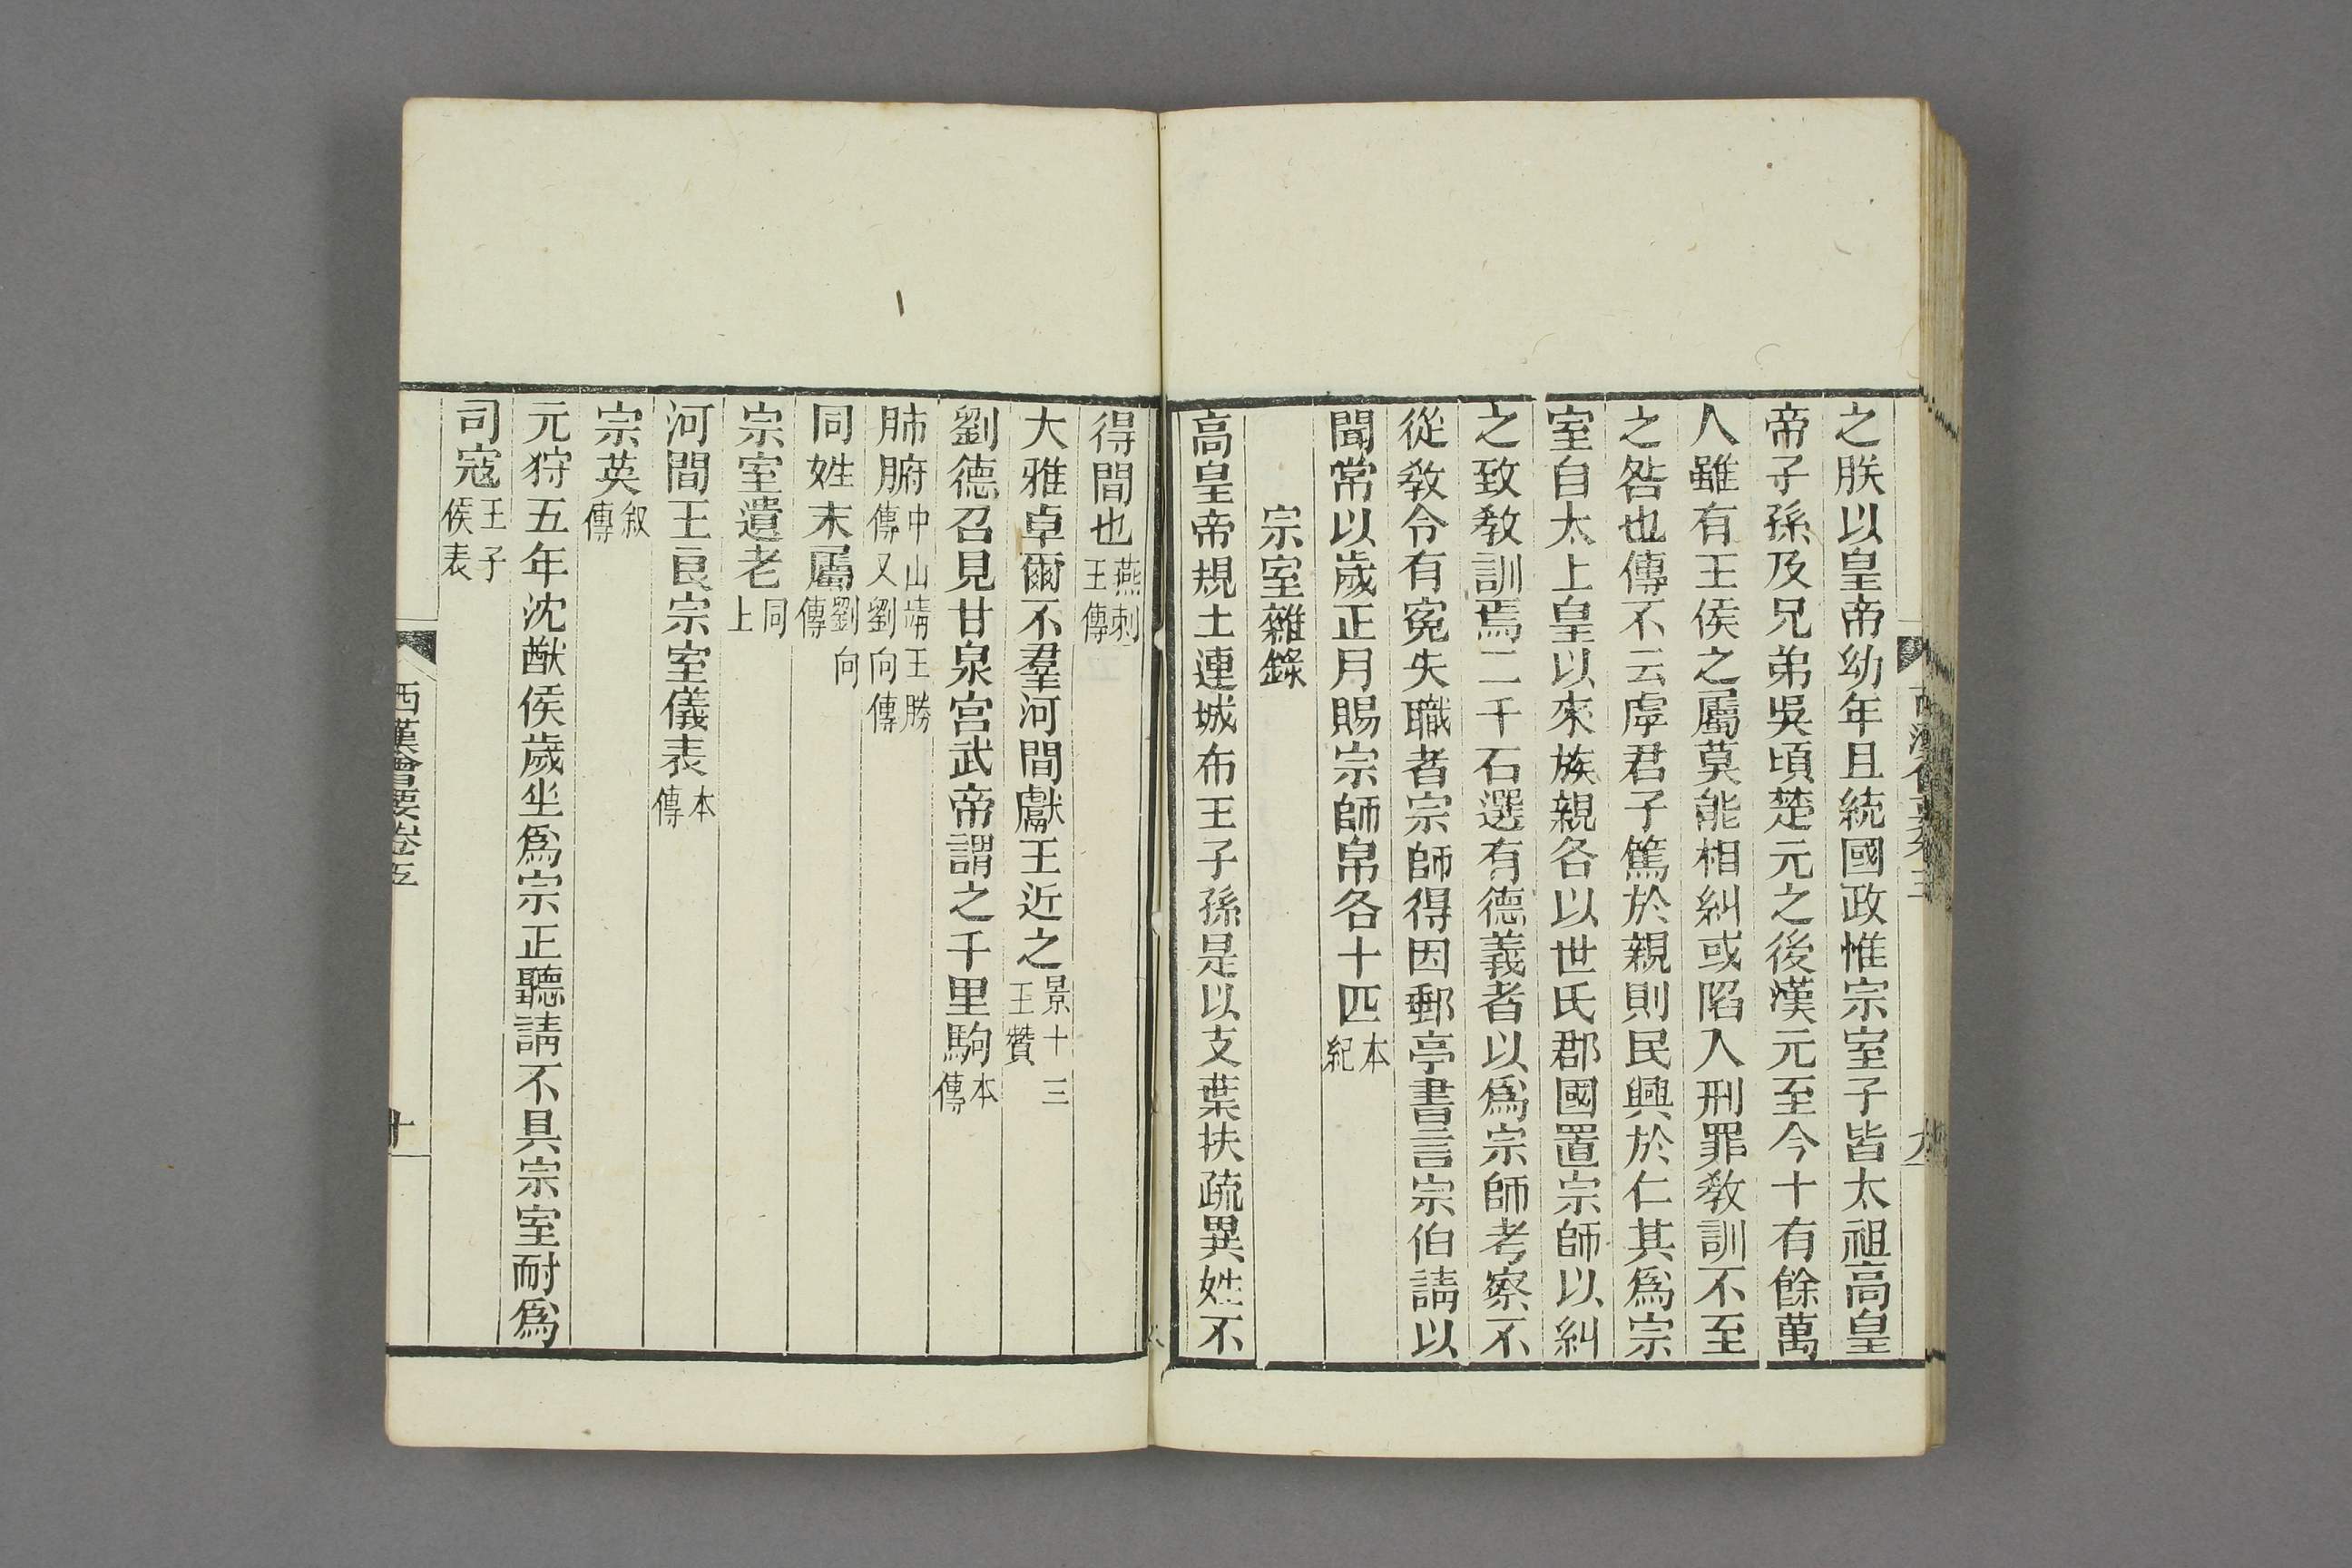 之朕以皇帝幼年且統國政惟宗室子皆太祖高皇
帝子孫及兄弟吳頃楚元之後漢元至今十有餘萬
人雖有王侯之屬莫能相糾或陷入刑罪敎訓不至
之咎也傳不云虖君子篤於親則民興於仁其爲宗
室自太上皇以來族親各以世氏郡國置宗師以糾
之致敎訓焉二千石選有德義者以爲宗師考察不
從敎令有冤失職者宗師得因郵亭書言宗伯請以
聞常以歲正月賜宗師帛各十匹本紀
宗室雜錄
高皇帝規土連城布王子孫是以支葉扶疏異姓不
得間也燕刺王傳
大雅卓爾不羣河間獻王近之景十三王贊
劉德召見甘泉宮武帝謂之千里駒本傳
肺腑中山靖王勝傳又劉向傳
同姓末屬劉向傳
宗室遺老同上
河間王良宗室儀表本傳
宗英叙傳
元狩五年沈猷侯歲坐爲宗正聽請不具宗室耐爲
司寇王子侯表
西漢會要卷五
十